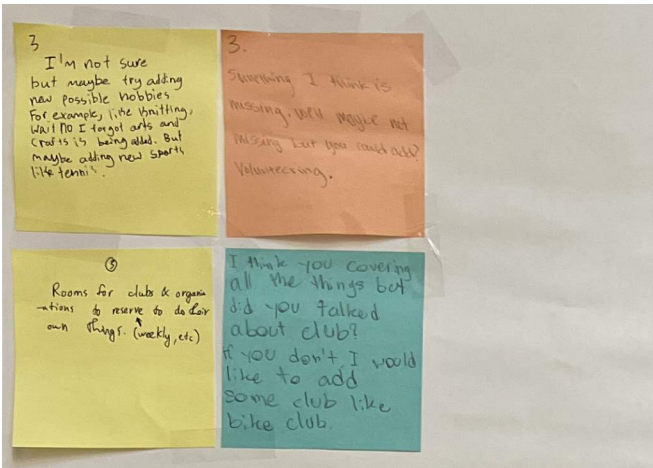 3
I'm not sure
but maybe try adding
new possible hobbies
For example, like knitting,
wait no I forgot arts and
crafts is being added. But
maybe adding new sports
like tennis.
3.
Something I think is
missing, well maybe not
missing but you could add?
Volunteering.
③
Rooms for clubs & organiz
-ations to reserve to do their
own things. (weekly, etc)
I think you covering
all the things but
did you talked
about club?
if you don't, I would
like to add
some club like
bike club.